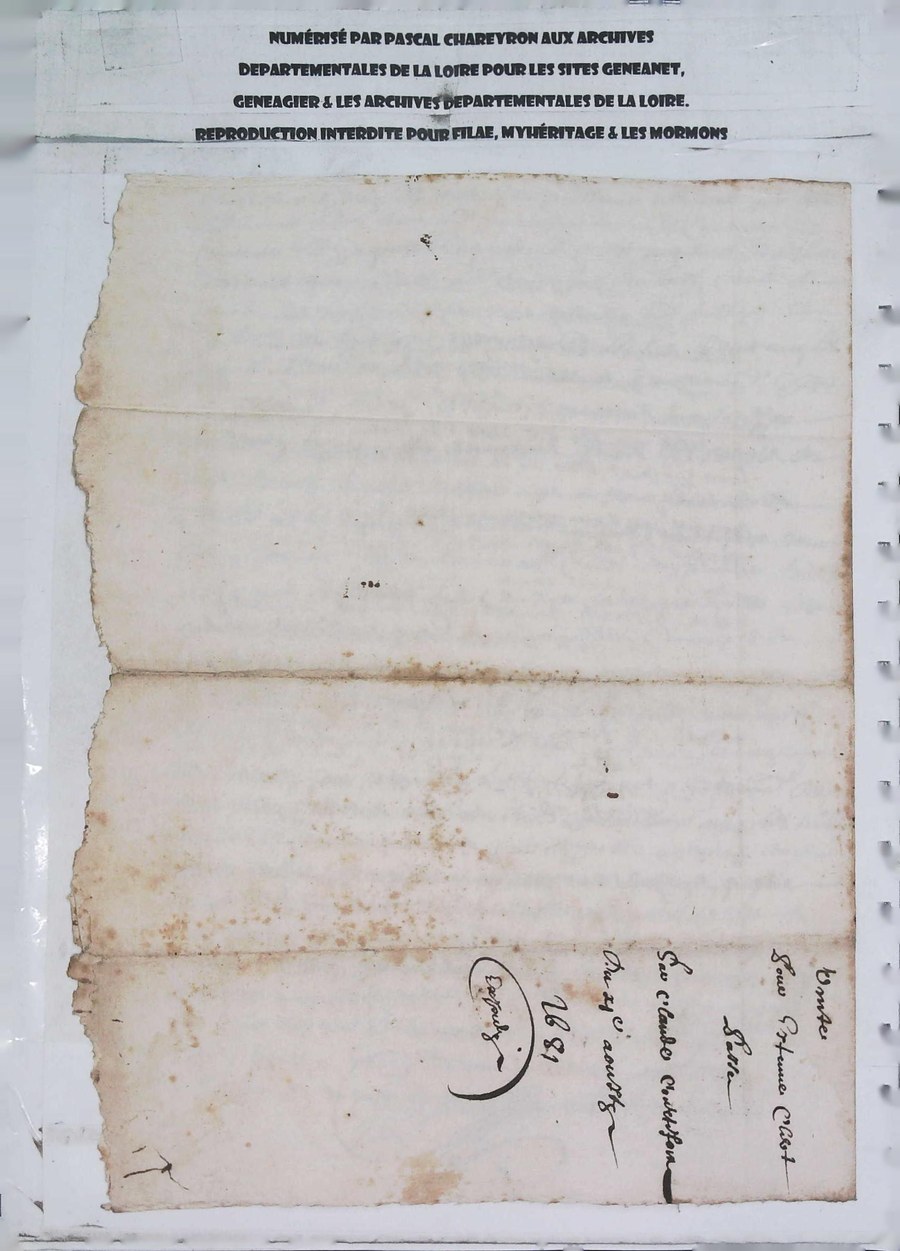 NUMÉRISÉ PAR PASCAL CHAREYRON AUX ARCHIVES
DEPARTEMENTALES DE LA LOIRE POUR LES SITES GENEANET,
GENEAGIER & LES ARCHIVES DEPARTEMENTALES DE LA LOIRE.
REPRODUCTION INTERDITE POUR FILAE, MYHÉRITAGE & LES MORMONS
Vente
Pour Estienne
Passée
Par Claude
Du xj^e aoust
1681